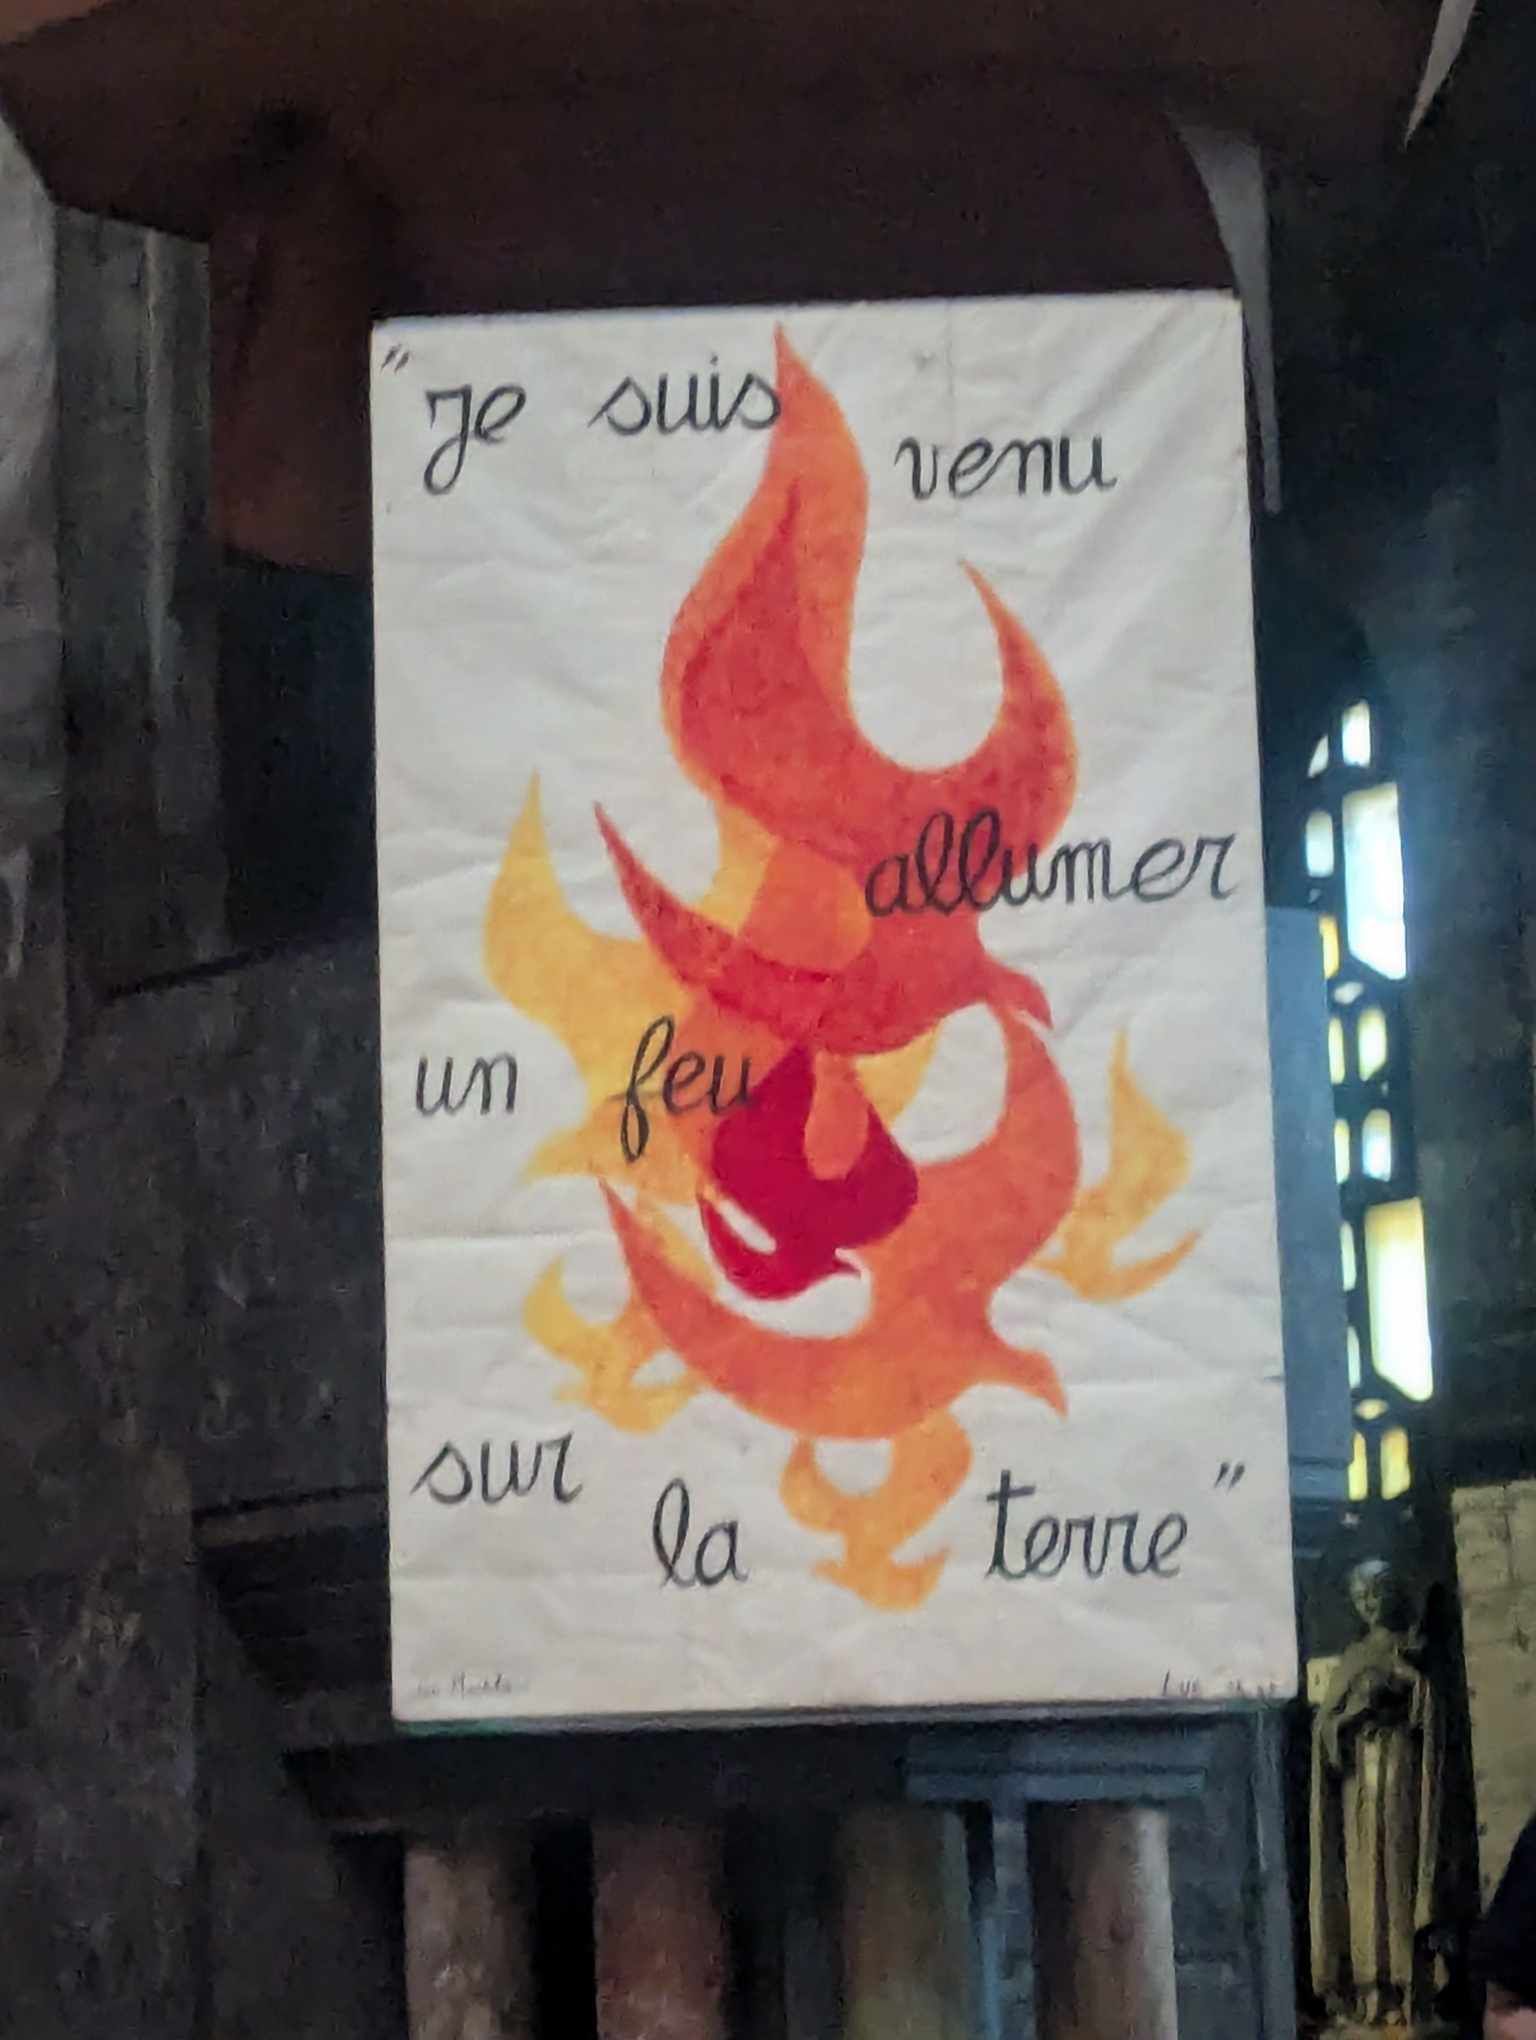 "Je suis
venu
allumer
un feu
sur
la terre"
Luc